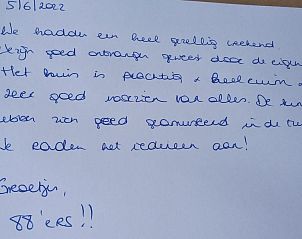 5/6/2022
We hadden een heel gezellig weekend
goed ontvangen geweest door de eigen
Het huis is prachtig + heel ruim
zeer goed voorzien van alles. De
hebben zich goed geamuseerd in de
We raden het iedereen aan!
Groetjes,
88'ers!!